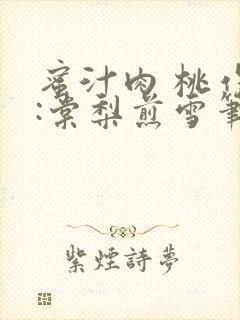 蜜汁肉桃
:棠梨煎雪筆
紫煙詩夢